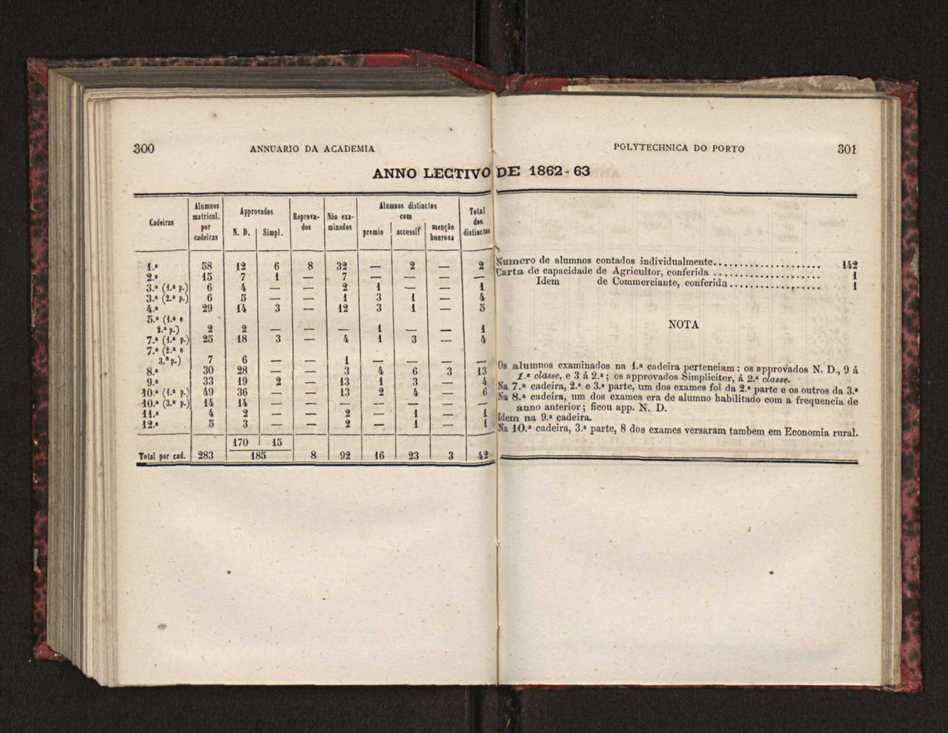 300 ANNUARIO DA ACADEMIA
POLYTECHNICA DO PORTO 301
ANNO LECTIVO DE 1862-63
Cadeiras | Alumnos matricul. por cadeiras | Approvados N. D. | Simpl. | Reprovados | Não examinados | Alumnos distinctos com premio | accessit | menção honrosa | Total dos distinctos
1.ª 58 12 6 8 32 — 2 — 2
2.ª 15 7 1 — 7 — — — —
3.ª (1.ª p.) 6 4 — — 2 1 — — 1
3.ª (2.ª p.) 6 5 — — 1 3 1 — 4
4.ª 29 14 3 — 12 3 1 — 5
5.ª (1.ª e
2.ª p.) 2 2 — — — 1 — — 1
7.ª (1.ª p.) 25 18 3 — 4 1 3 — 4
7.ª (2.ª e
3.ª p.) 7 6 — — 1 — — — —
8.ª 30 28 — — 3 4 6 3 13
9.ª 33 19 2 — 13 1 3 — 4
10.ª (1.ª p.) 49 36 — — 13 2 4 — 6
10.ª (3.ª p.) 14 14 — — — — — — —
11.ª 4 2 — — 2 — 1 — 1
12.ª 5 3 — — 2 — 1 — 1
170 15
Total por cad. 283 185 8 92 16 23 3 42
Numero de alumnos contados individualmente.................... 142
Carta de capacidade de Agricultor, conferida .................... 1
Idem de Commerciante, conferida.................. 1
NOTA
Os alumnos examinados na 1.ª cadeira pertenciam: os approvados N. D., 9 á
1.ª classe, e 3 á 2.ª; os approvados Simpliciter, á 2.ª classe.
Na 7.ª cadeira, 2.ª e 3.ª parte, um dos exames foi da 2.ª parte e os outros da 3.ª
Na 8.ª cadeira, um dos exames era de alumno habilitado com a frequencia de
anno anterior; ficou app. N. D.
Idem na 9.ª cadeira.
Na 10.ª cadeira, 3.ª parte, 8 dos exames versaram tambem em Economia rural.